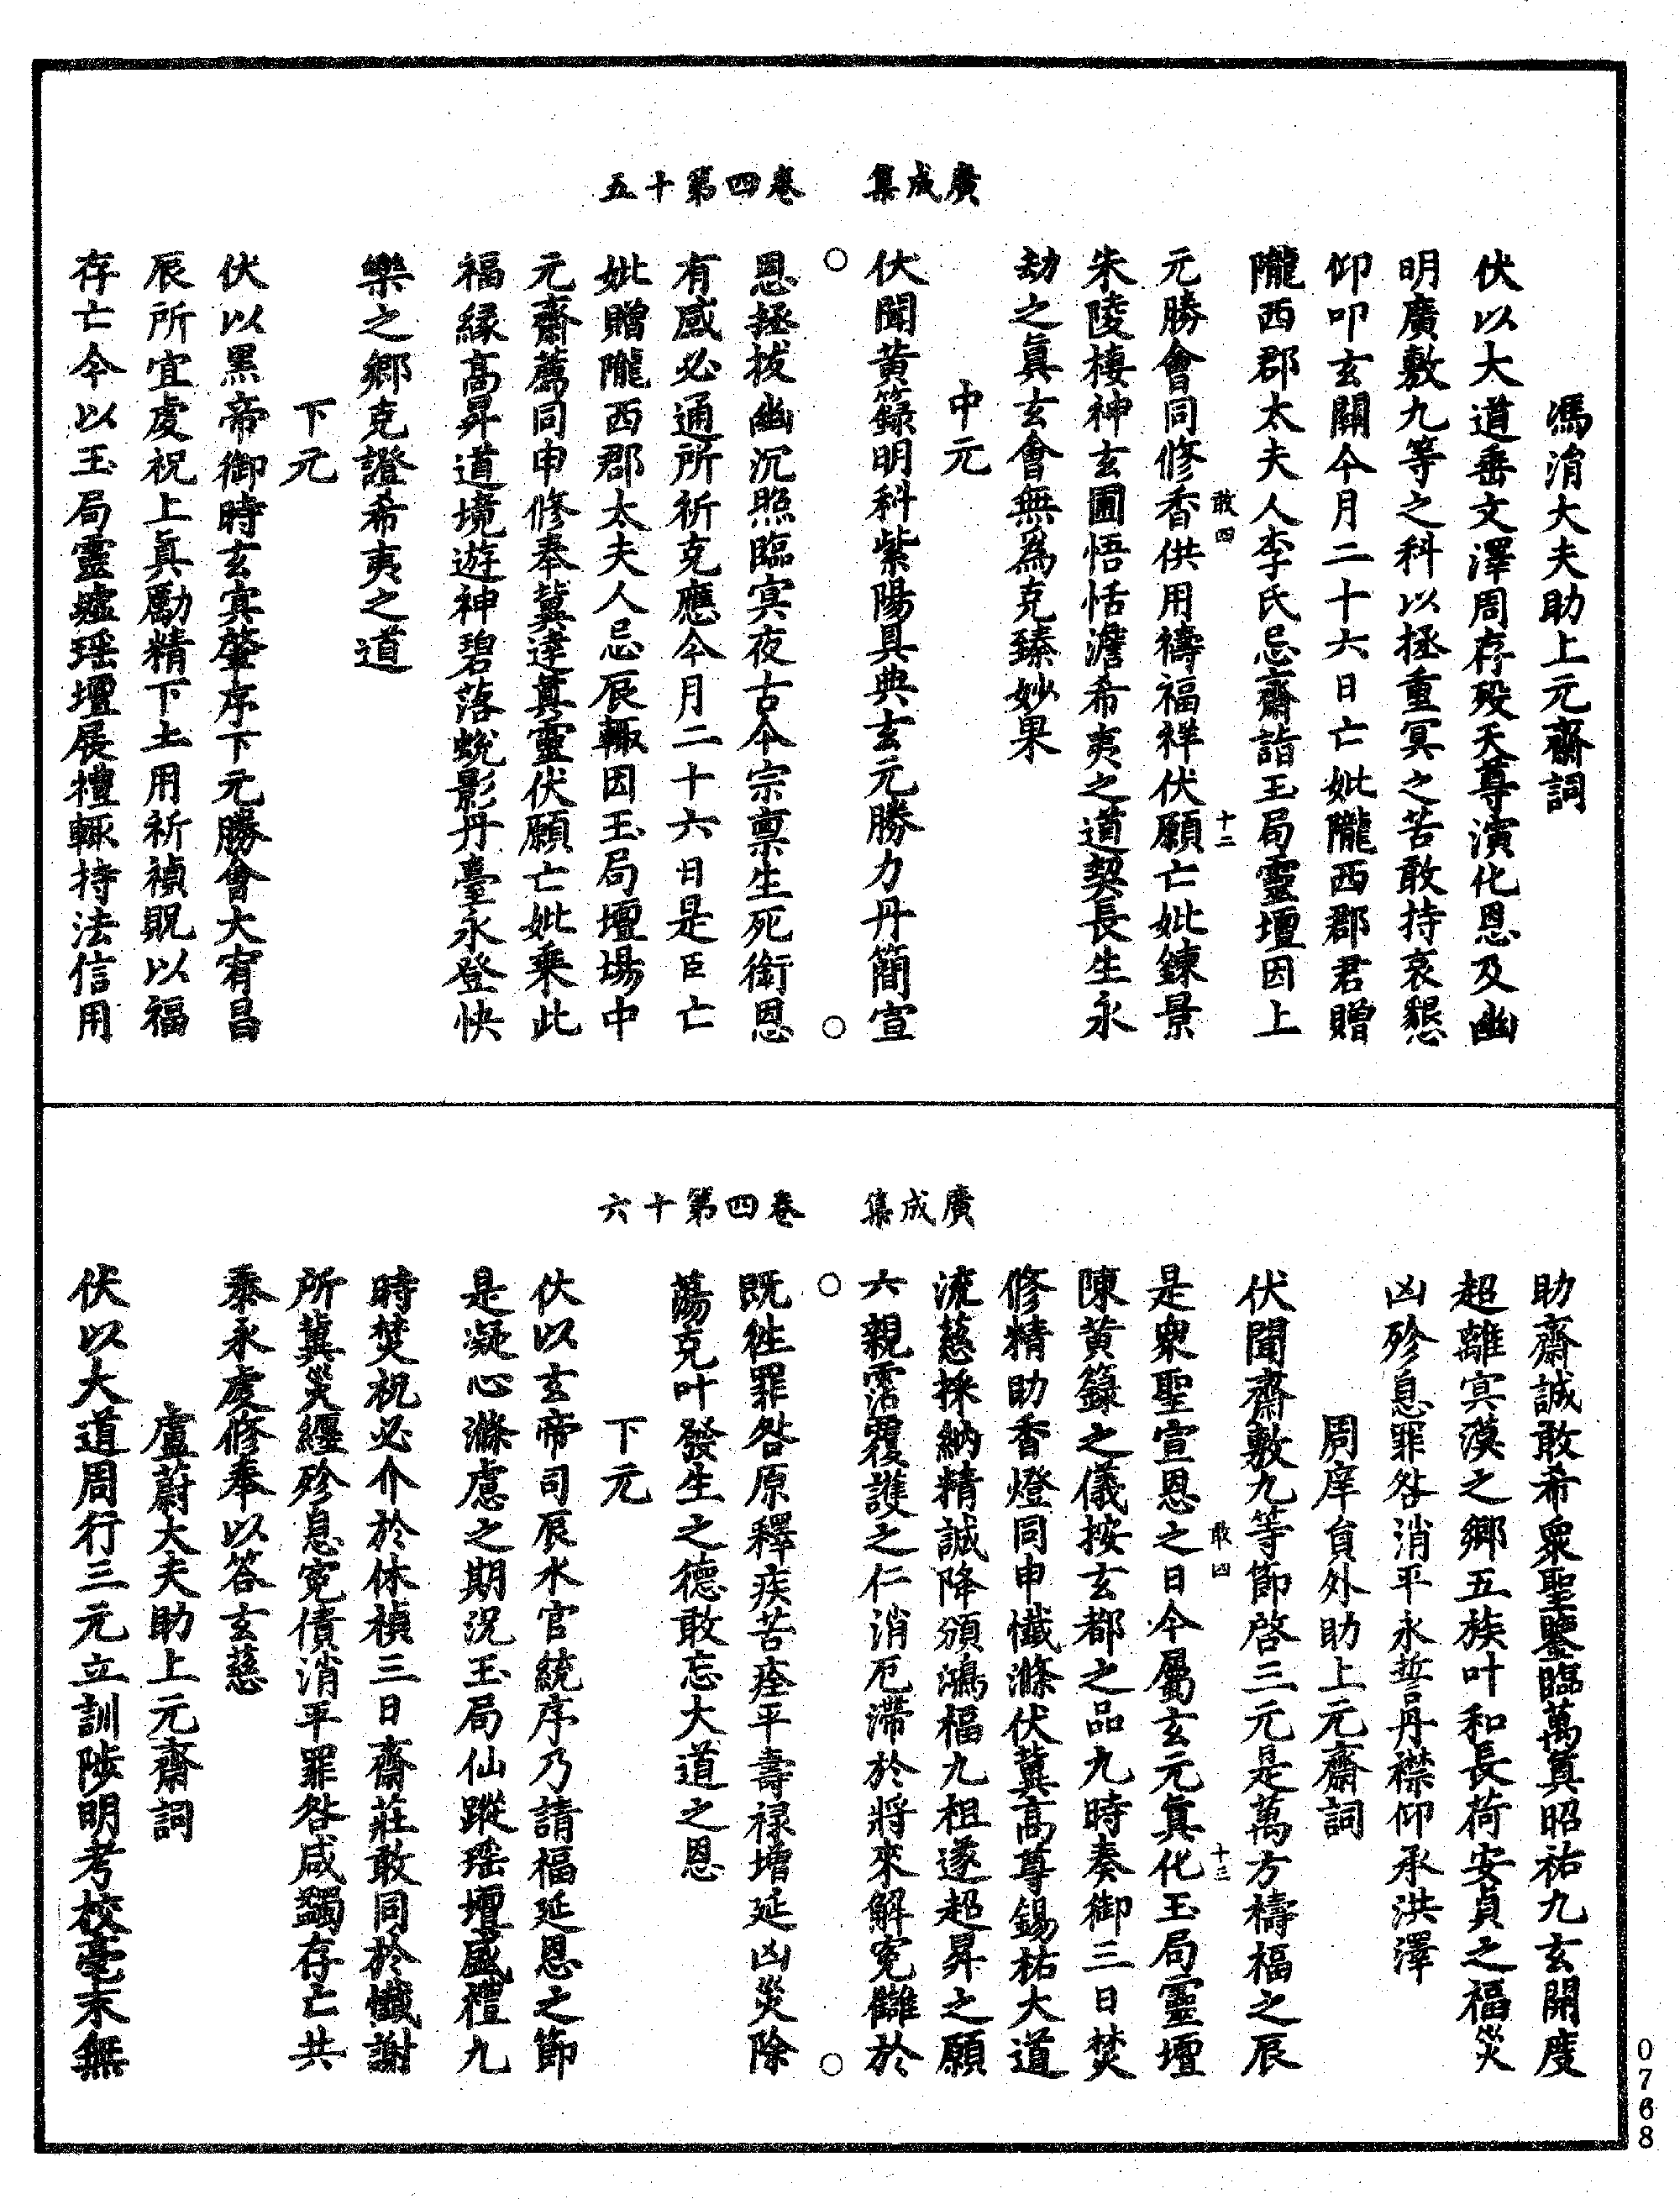 廣成集　卷四第十五
馮涓大夫助上元齋詞
伏以大道垂文澤周存殁天尊演化恩及幽
明廣敷九等之科以拯重冥之苦敢持哀懇
仰叩玄關今月二十六日亡妣隴西郡君贈
隴西郡太夫人李氏忌齋詣玉局靈壇因上
元勝會同修香供用禱福祥伏願亡妣鍊景
敢四
十二
朱陵棲神玄圃悟恬澹希夷之道契長生永
劫之眞玄會無爲克臻妙果
中元
伏聞黄籙明科紫陽具典玄元勝力丹簡宣
恩拯拔幽沉照臨㝠夜古今宗禀生死銜恩
有感必通所祈克應今月二十六日是臣亡
妣贈隴西郡太夫人忌辰輙因玉局壇場中
元齋薦同申修奉冀達眞靈伏願亡妣乘此
福緣髙昇道境遊神碧落蛻影丹臺永登快
樂之郷克證希夷之道
下元
伏以黑帝御時玄㝠肇序下元勝會大宥昌
辰所宜虔祝上眞勵精下土用祈禎貺以福
存亡今以玉局靈墟瑶壇展禮輙持法信用
廣成集　卷四第十六
助齋誠敢希衆聖鑒臨萬眞昭祐九玄開度
超離㝠漠之郷五族叶和長荷安貞之福災
凶殄息罪咎消平永誓丹襟仰承洪澤
周庠員外助上元齋詞
伏聞齋敷九等節啓三元是萬方禱福之辰
是衆聖宣恩之日今屬玄元眞化玉局靈壇
敢四
十三
陳黄籙之儀按玄都之品九時奏御三日焚
修精助香燈同申懺滌伏冀髙尊錫祐大道
流慈採納精誠降頒鴻福九祖遂超昇之願
六親霑覆護之仁消厄滯於將來解寃讎於
既徃罪咎原釋疾苦痊平壽禄增延凶災除
蕩克叶發生之德敢忘大道之恩
下元
伏以玄帝司辰水官統序乃請福延恩之節
是凝心滌慮之期況玉局仙蹤瑶壇盛禮九
時焚祝必介於休禎三日齋莊敢同於懺謝
所冀災纒殄息寃債消平罪咎咸蠲存亡共
泰永虔修奉以答玄慈
盧蔚大夫助上元齋詞
伏以大道周行三元立訓陟明考校毫末無
0768